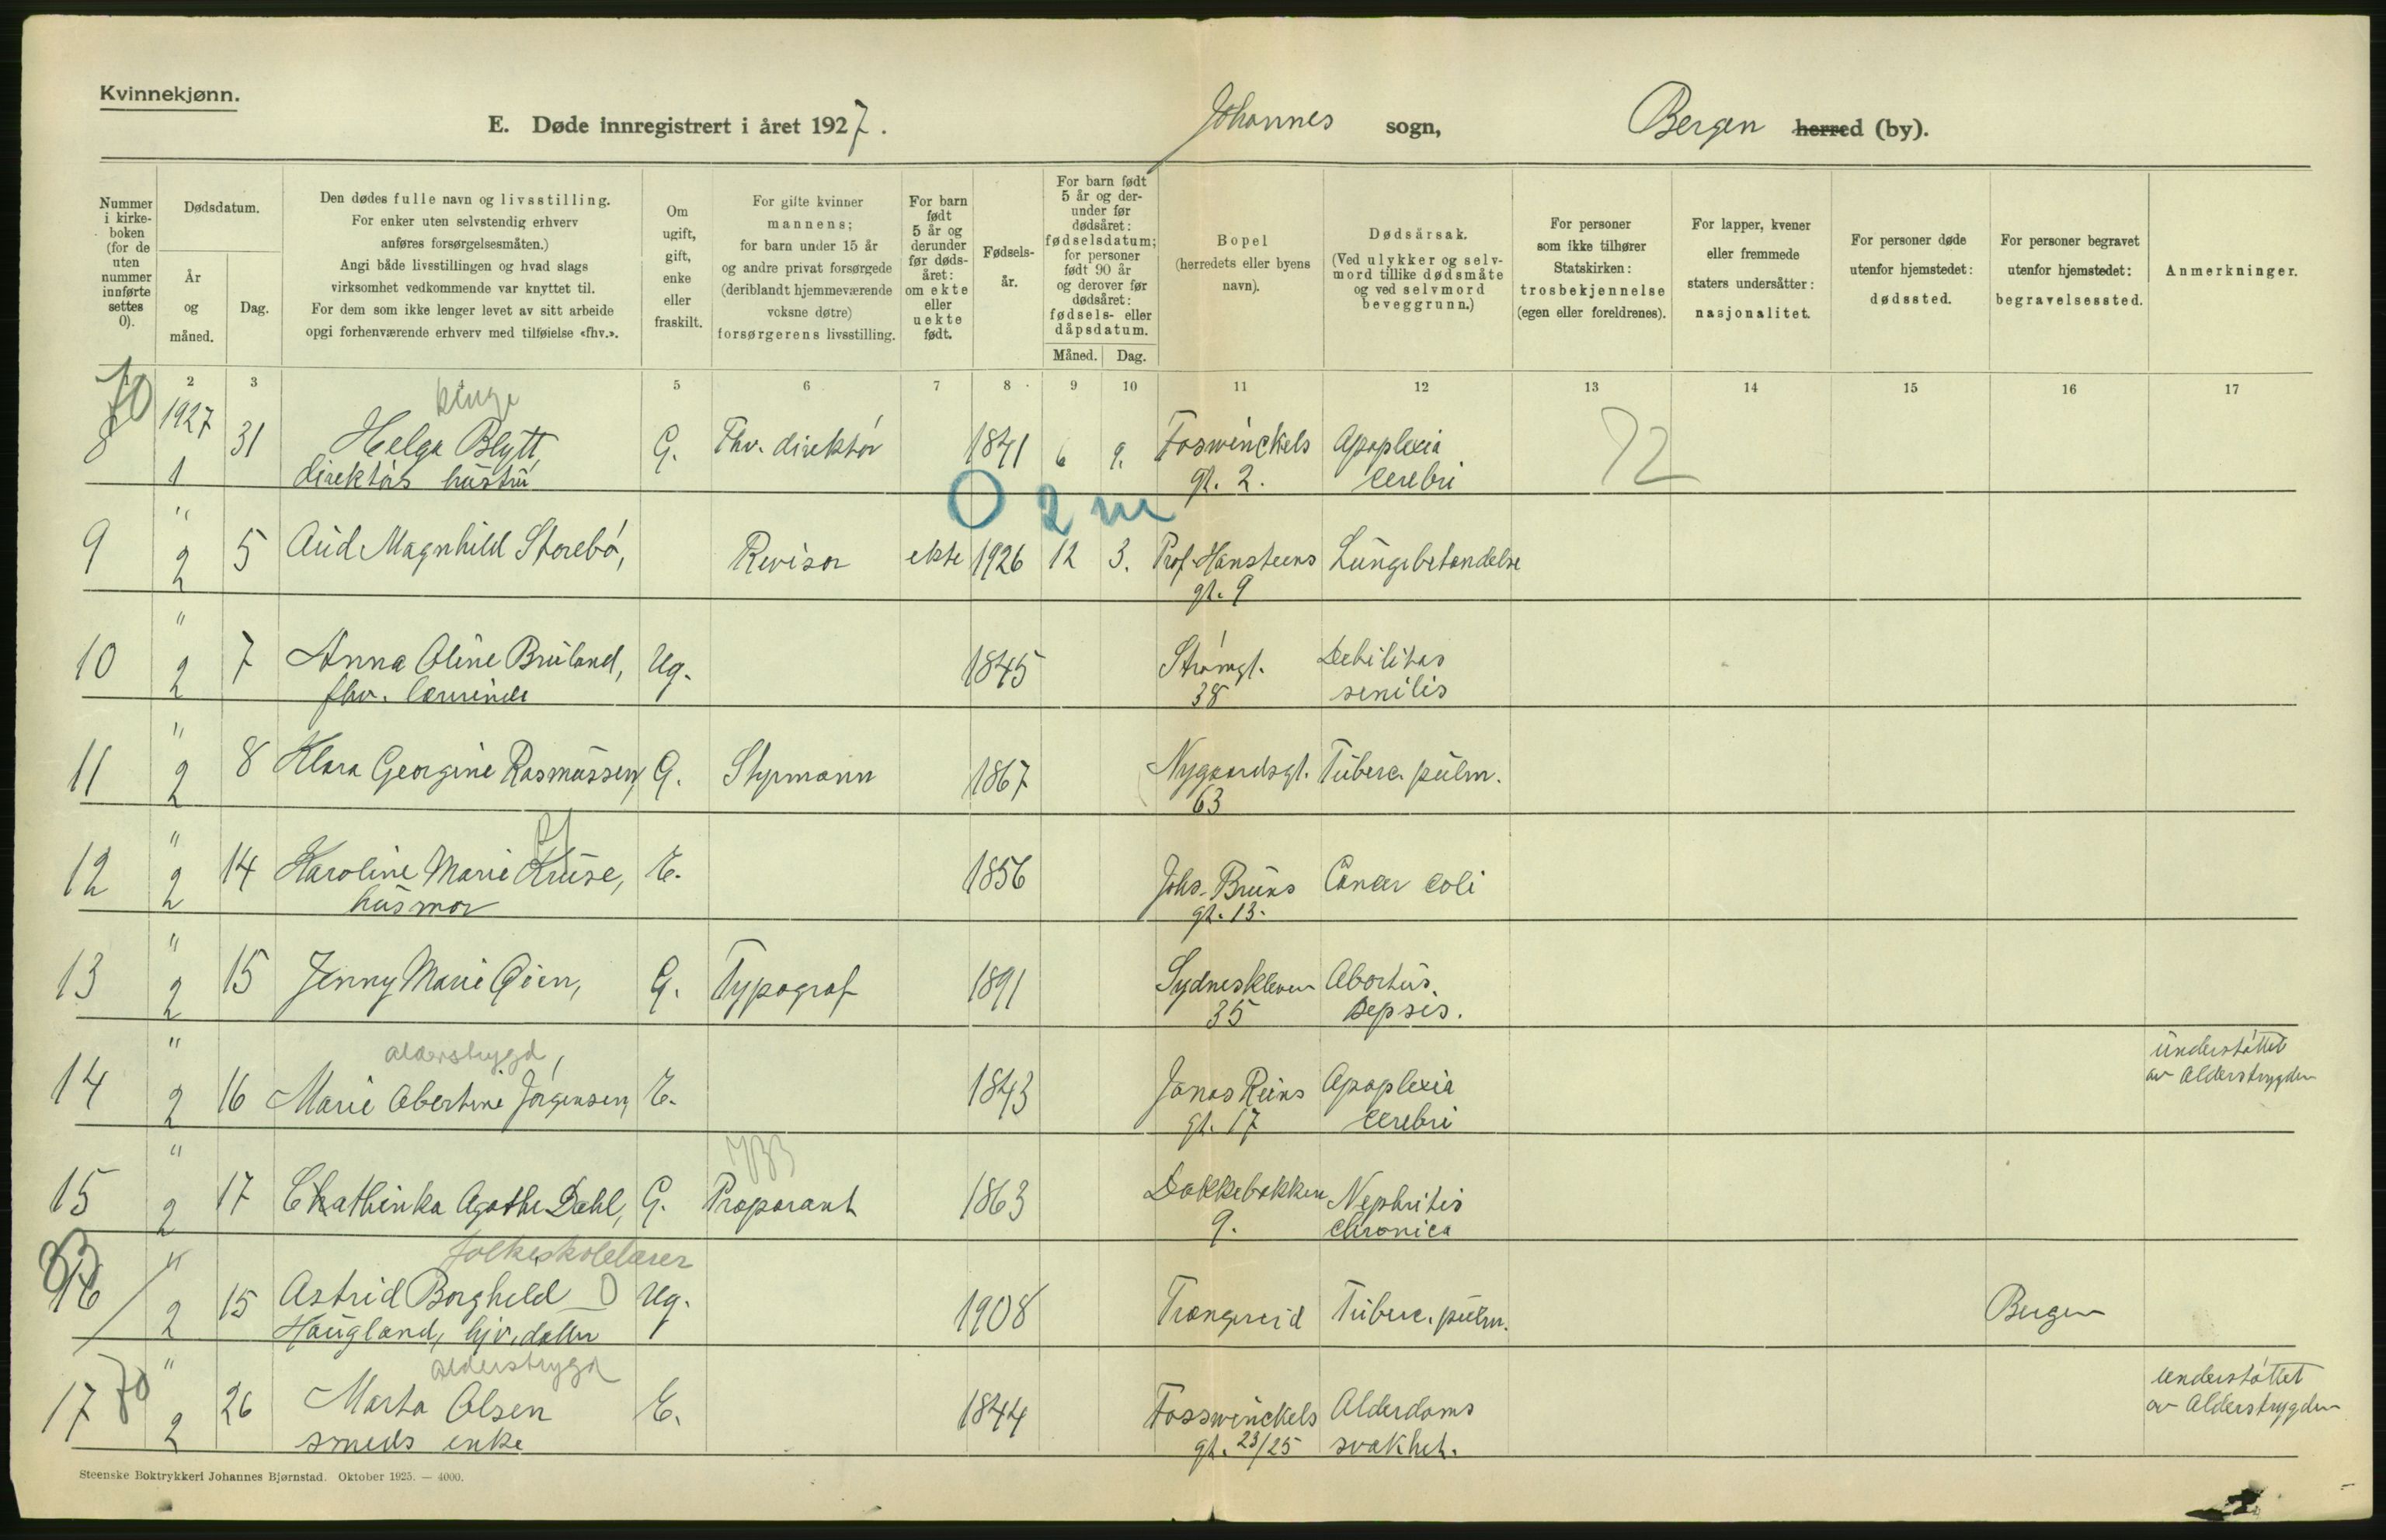 Kvinnekjønn.
E. Døde innregistrert i året 1927. Johannes sogn, Bergen herred (by).
Nummer i kirkeboken (for de uten nummer innførte settes 0).
Dødsdatum.
År og måned.
Dag.
Den dødes fulle navn og livsstilling.
For enker uten selvstendig erhverv
anføres forsørgelsesmåten.)
Angi både livsstillingen og hvad slags
virksomhet vedkommende var knyttet til.
For dem som ikke lenger levet av sitt arbeide
opgi forhenværende erhverv med tilføielse «fhv.».
Om ugift, gift, enke eller fraskilt.
For gifte kvinner
mannens;
for barn under 15 år
og andre privat forsørgede
(deriblandt hjemmeværende
voksne døtre)
forsørgerens livsstilling.
For barn født 5 år og derunder før dødsåret: om ekte eller uekte født.
Fødselsår.
For barn født 5 år og derunder før dødsåret: fødselsdatum; for personer født 90 år og derover før dødsåret: fødsels- eller dåpsdatum.
Måned. Dag.
Bopel
(herredets eller byens
navn).
Dødsårsak.
(Ved ulykker og selv-
mord tillike dødsmåte
og ved selvmord
beveggrunn.)
For personer
som ikke tilhører
Statskirken:
trosbekjennelse
(egen eller foreldrenes).
For lapper, kvener
eller fremmede
staters undersåtter:
nasjonalitet.
For personer døde
utenfor hjemstedet:
dødssted.
For personer begravet
utenfor hjemstedet:
begravelsessted.
Anmerkninger.
2 3 5 6 7 8 9 10 11 12 13 14 15 16 17
70
8 1927 31 Helga Blytt, G. Fhv. direktør 1841 6 9. Foswinckels Apoplexia 72
1 direktørs hustru gt. 2. cerebri
0 2 m
9 " 2 5 Aud Magnhild Storebø, Revisor ekte 1926 12 3. Prof. Hansteens Lungebetændelse
gt. 9
10 " 2 7 Anna Oline Bruland, Ug. 1845 Strømgt. Debilitas
fhv. lærerinde 38 senilis
11 " 2 8 Klara Georgine Rasmussen, G. Styrmann 1867 Nygaardsgt. Tuberc. pulm.
63
12 " 2 14 Karoline Marie Kruse, E. 1856 Johs. Bruns Cancer coli
husmor gt. 13.
13 " 2 15 Jenny Marie Øien, G. Typograf 1891 Sydneskleven Abortus.
35 Sepsis.
alderstrygd understøttet
14 " 2 16 Marie Obertine Jørgensen, E. 1843 Jonas Reins Apoplexia av Alderstrygden
gt. 17 cerebri
15 " 2 17 Chathinka Agathe Dahl, G. Præparant 1863 Dokkebakken Nephritis
9. chronica
folkeskolelærer
16 " 2 15 Astrid Borghild Ug. 1908 Trengereid Tuberc. pulm. Bergen
Haugland, hjv. datter
alderstrygd understøttet
17 70 " 2 26 Marta Olsen E. 1844 Fosswinckels Alderdoms av Alderstrygden
smeds enke gt. 23/25 svakhet.
Steenske Boktrykkeri Johannes Bjørnstad. Oktober 1925. — 4000.